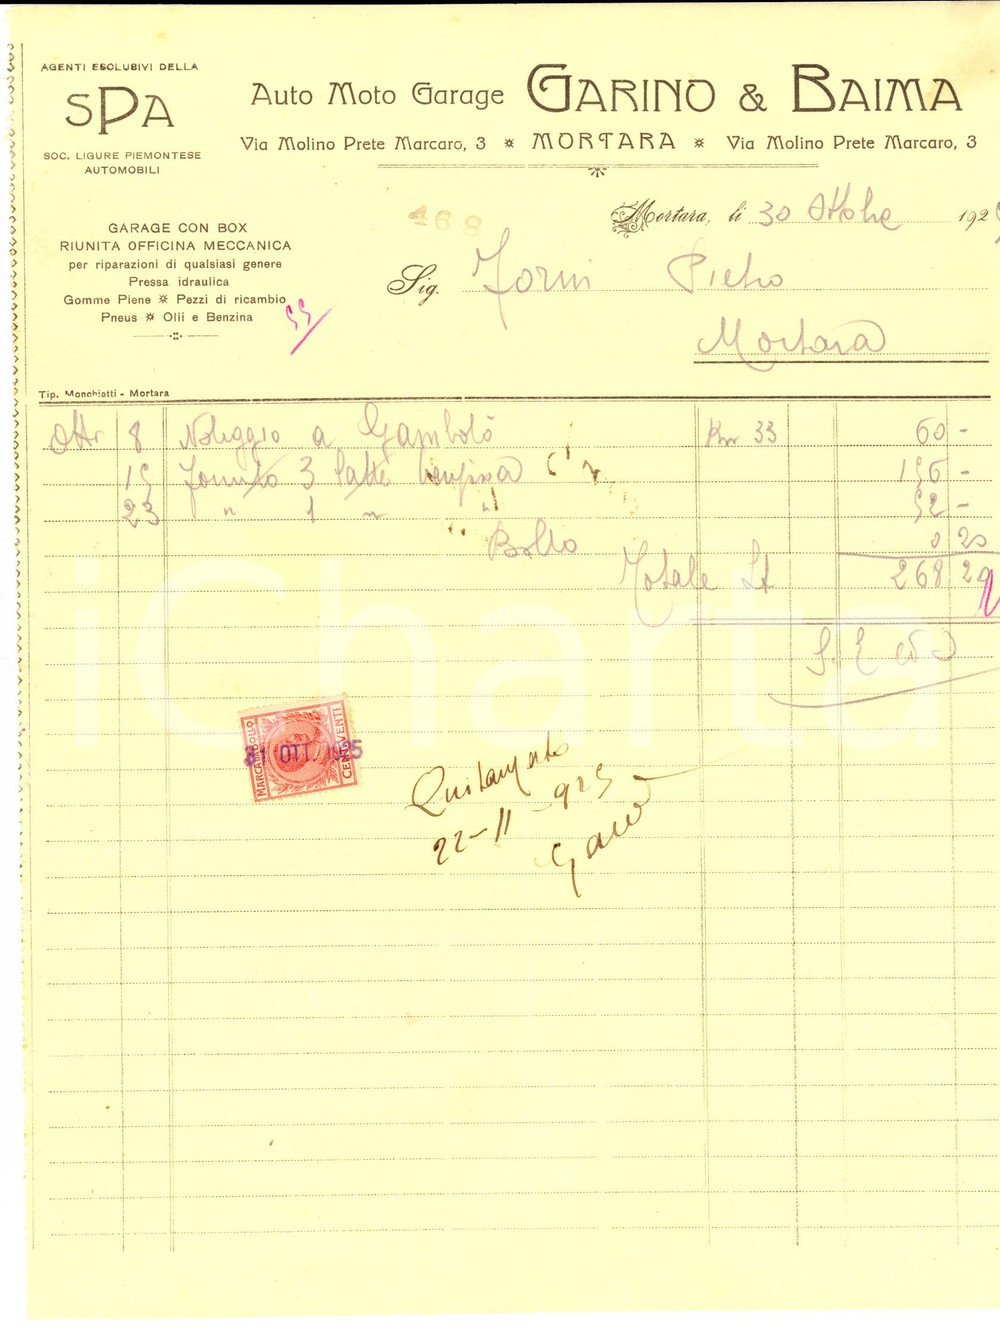 AGENTI ESCLUSIVI DELLA
SPA
SOC. LIGURE PIEMONTESE
AUTOMOBILI
Auto Moto Garage GARINO & BAIMA
Via Molino Prete Marcaro, 3 * MORTARA * Via Molino Prete Marcaro, 3
GARAGE CON BOX
RIUNITA OFFICINA MECCANICA
per riparazioni di qualsiasi genere
Pressa idraulica
Gomme Piene * Pezzi di ricambio
Pneus * Olii e Benzina
55
468
Mortara, li 30 Ottobre 1925
Sig. Forni Pietro
Mortara
Tip. Monchiatti - Mortara
Ott 8 Noleggio a Gambolò Km 33 60 -
15 Fornito 3 latte benzina 156 -
23 " 1 " " 52 -
Bollo 0 20
Totale Lt 268 20
S. E. ed O
MARCA DA BOLLO
CENT. VENTI
31 OTT. 1925
Quitanzato
22-11-925
iCharta